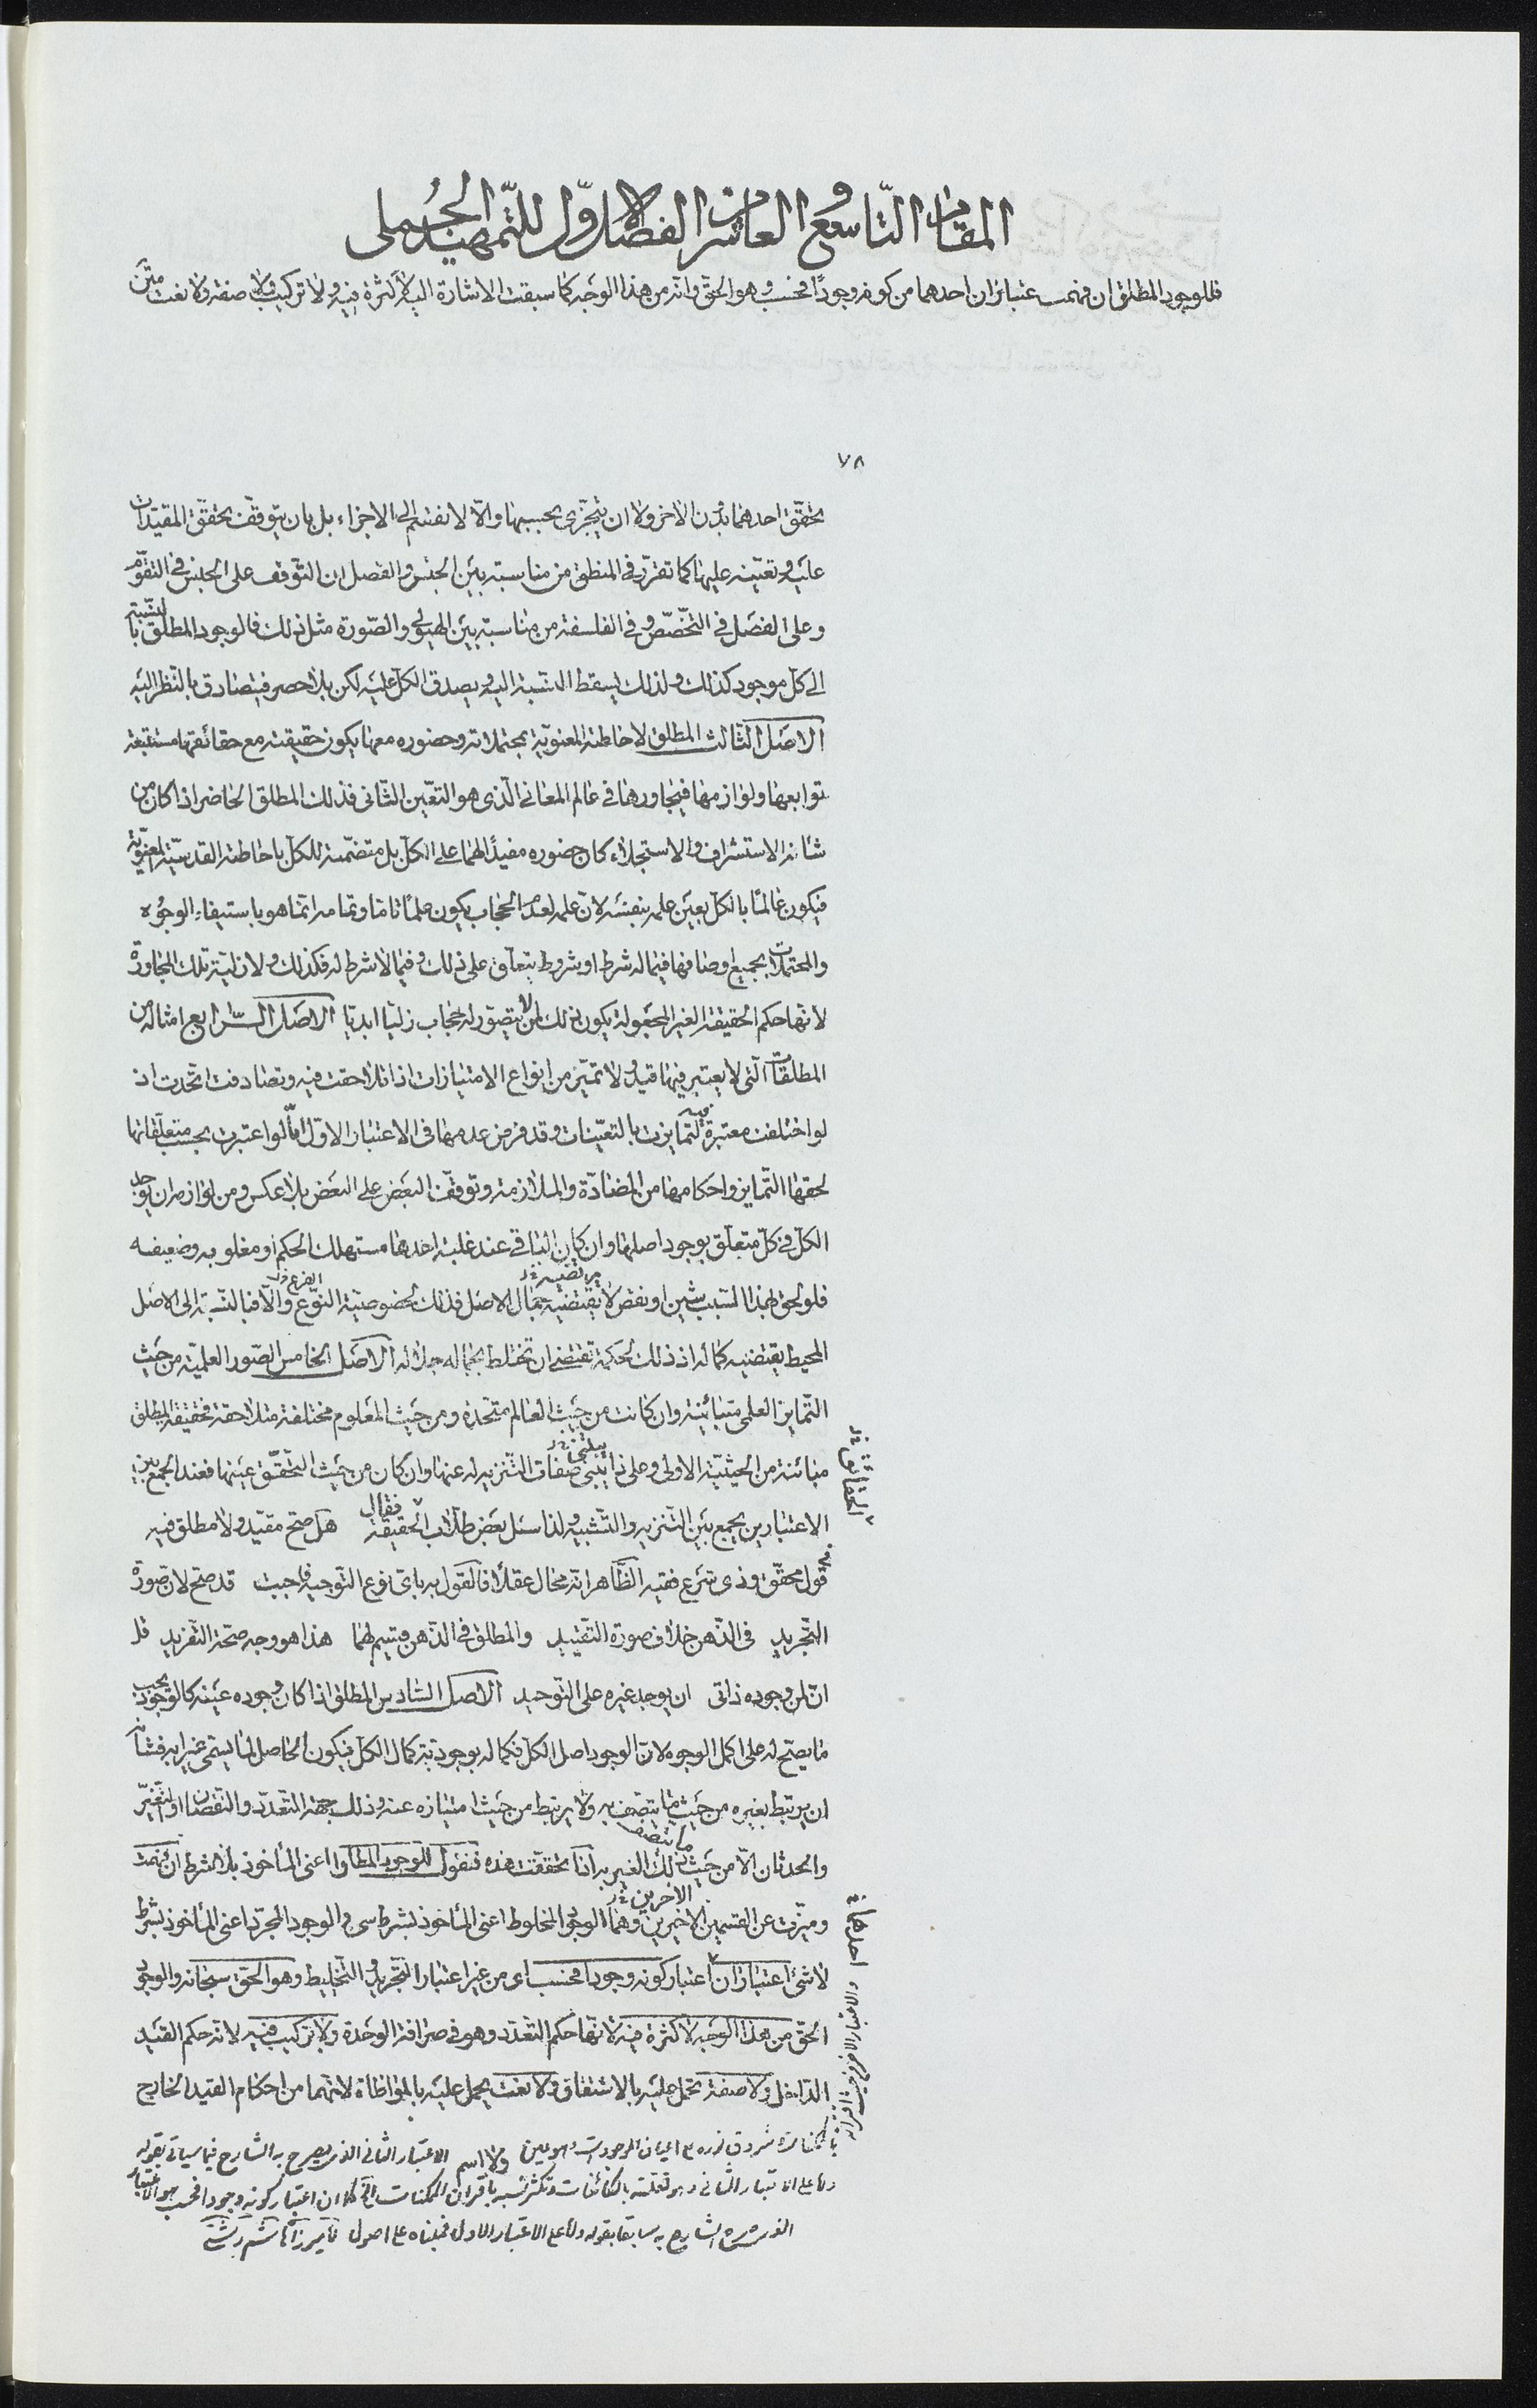 المقام التاسع و العاشر من الفصل الاول للتمهيد الجملى
فللوجود المطلق ان فهمت اعتباران احدهما من كونه وجودا فحسب وهو الحق وانه من هذا الوجه كما سبقت الاشارة اليه لا كثرة فيه ولا تركيب ولا صفة ولا نعت متن
٧٨
تحقق احدهما بدون الاخر ولا ان يتجزى بحسبها والا لانقسم الى الاجزاء بل بان يتوقف تحقق المقيدات
عليه و تعينه عليها كما تقرر فى المنطق من مناسبته بين الجنس والفصل ان التوقف على الجنس فى التقوم
وعلى الفصل فى التخصص وفى الفلسفة من مناسبته بين الهيولى والصورة مثل ذلك فالوجود المطلق بالنسبة
الى كل موجود كذلك ولذلك يسقط النسبة اليه و يصدق الكل عليه لكن بلا حصر فيتصادق بالنظر اليه
الاصل الثالث المطلق لاحاطته المعنوية بمحتملاته وحضوره معها يكون حقيقته مع حقائقها مستتبعة
توابعها ولوازمها فيجاورها فى عالم المعانى الذى هو التعين الثانى فذلك المطلق الحاضر اذا كان من
شانه الاستشراف والاستجلاء كان حضوره مفيدا لهما على الكل بل متضمنة للكل باحاطته القدسية المعنوية
فيكون عالما بالكل بعين علمه بنفسه لان علمه لعدم الحجاب يكون علما تاما وتمامه انما هو باستيفاء الوجوه
والمحتملات بجميع اوصافها فيما له شرط او شروط يتعلق على ذلك وفيما لا شرط له فكذلك ولازلية تلك المجاورة
لانها حكم الحقيقة الغير المجعولة يكون ذلك لمن لا يتصور له حجاب ازليا ابديا الاصل الرابع امثاله من
المطلقات التى لا يعتبر فيها قيد ولا تميز من انواع الامتيازات اذا تلاحقت فيه وتصادفت اتحدت اذ
لو اختلفت معتبرة فيه لتمايزت بالتعينات وقد فرض عدمها فى الاعتبار الاول اما لو اعتبرت بحسب متعلقاتها
لحقها التمايز واحكامها من المضادة والملازمة وتوقف البعض على البعض بلا عكس ومن لوازمه ان يوجد
الكل فى كل متعلق بوجود اصلها وان كان الباقى عند غلبة احدها مستهلك الحكم او مغلوبه وضعيفه
فلو لحق لهذا السبب شين او نقص لا يقتضيه جمال الاصل فذلك لخصوصية النوع والا فبالنسبة الى الاصل
المحيط يقتضيه كماله اذ ذلك لحكمة تقتضى ان تختلط بجماله جلاله الاصل الخامس الصور العلمية من حيث
التمايز العلمى متباينة وان كانت من حيث العالم متحدة ومن حيث المعلوم مختلفة متلاحقة فحقيقة المطلق
مباينة من الحيثية الاولى وعلى ذا يبتنى صفات التنزيه له عنها وان كان من حيث التحقق عينها فعند الجمع بين
الاعتبارين يجمع بين التنزيه والتشبيه ولذا سئل بعض طلاب الحقيقة فقال هل صح مقيد ولا مطلق فيه
فى قول محقق وذى شرع فقيه الظاهر انه محال عقلا فالقول به باى نوع التوجيه فاجبت قد صح لان صورة
التجريد فى الذهن خلاف صورة التقييد والمطلق فى الذهن قسيم لهما هذا هو وجه صحة التفريد قد
ان لمن وجوده ذاتى ان يوجد غيره على التوحيد الاصل السادس المطلق اذا كان وجوده عينه كالوجود يجب
ما يصح له على اكمل الوجوه لان الوجود اصل الكل فكماله بوجودية كمال الكل فيكون الحاصل لما يسمى غيرا به فشانه
ان يرتبط بغيره من حيث ما يتصف به ولا يرتبط من حيث امتيازه عنه وذلك جهة التعدد والنقصان او التغير
والحدثان الا من حيث ما يتصف ذلك الغير به اذا تحققت هذه فنقول للوجود المطلق اعنى الماخوذ بلا شرط ان فهمت
وميزت عن القسمين الاخيرين الاخرين وهما الوجود المخلوط اعنى الماخوذ بشرط شىء والوجود المجرد اعنى الماخوذ بشرط
لا شىء اعتباران اعتبار كونه وجودا فحسب اى من غير اعتبار التجريد و التخليط وهو الحق سبحانه والوجود
الحق من هذا الوجه لا كثرة فيه لانها حكم التعدد وهو فى صرافة الوحدة ولا تركيب فيه لانه حكم القيد
الداخل ولا صفة تحمل عليه بالاشتقاق ولا نعت يحمل عليه بالمواطاة لانهما من احكام القيد الخارج
ولا اسم الاعتبار الثانى الذى يصرح به الشارح فيما سياتى بقوله
واما على الاعتبار الثانى وهو تعلقه بالكائنات وتكثر نسبه باقتران الممكنات كما ان اعتبار كونه وجودا فحسب هو الاعتبار
الذى شرح الشارح به سابقا بقوله واما على الاعتبار الاول فمبناه على اصول